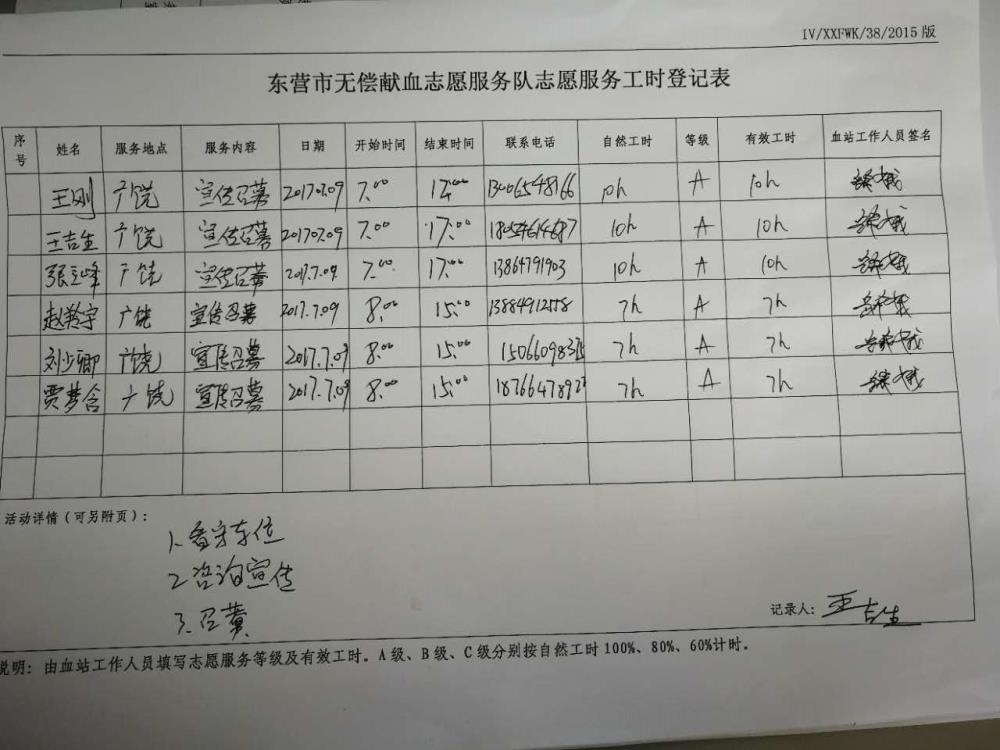 IV/XXFWK/38/2015版
东营市无偿献血志愿服务队志愿服务工时登记表
序号 姓名 服务地点 服务内容 日期 开始时间 结束时间 联系电话 自然工时 等级 有效工时 血站工作人员签名
王刚 广饶 宣传召募 2017.07.09 7:00 17:00 13406548166 10h A 10h
王吉生 广饶 宣传召募 2017.07.09 7:00 17:00 10h A 10h
张立峰 广饶 宣传召募 2017.7.09 7:00 17:00 13864791903 10h A 10h
广饶 宣传召募 2017.7.09 8:00 15:00 13884912558 7h A 7h
刘少卿 广饶 宣传召募 2017.7.09 8:00 15:00 7h A 7h
贾梦含 广饶 宣传召募 2017.7.09 8:00 15:00 7h A 7h
活动详情(可另附页):
1.看守车位
2.咨询宣传
3.召募
记录人: 王吉生
说明: 由血站工作人员填写志愿服务等级及有效工时。A级、B级、C级分别按自然工时100%、80%、60%计时。